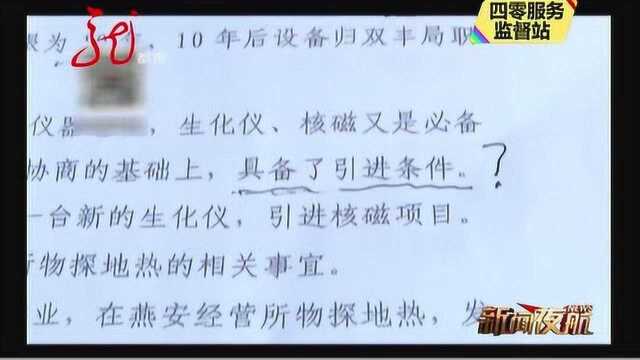 四零服务
监督站
都市
为 、10 年后设备归双丰局职
仪器 ，生化仪、核磁又是必备
协商的基础上，具备了引进条件。？
一台新的生化仪，引进核磁项目。
所物探地热的相关事宜。
业，在燕安经营所物探地热，发
新闻夜航
NEWS